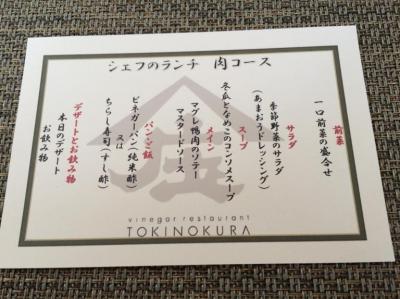 シェフのランチ 肉コース
前菜
一口前菜の盛合せ
サラダ
季節野菜のサラダ
（あまおうドレッシング）
スープ
冬瓜となめこのコンソメスープ
メイン
マグレ鴨肉のソテー
マスタードソース
パン・ご飯
ビネガーパン（純米酢）
又は
ちらし寿司（すし酢）
デザートとお飲み物
本日のデザート
お飲み物
vinegar restaurant
TOKINOKURA